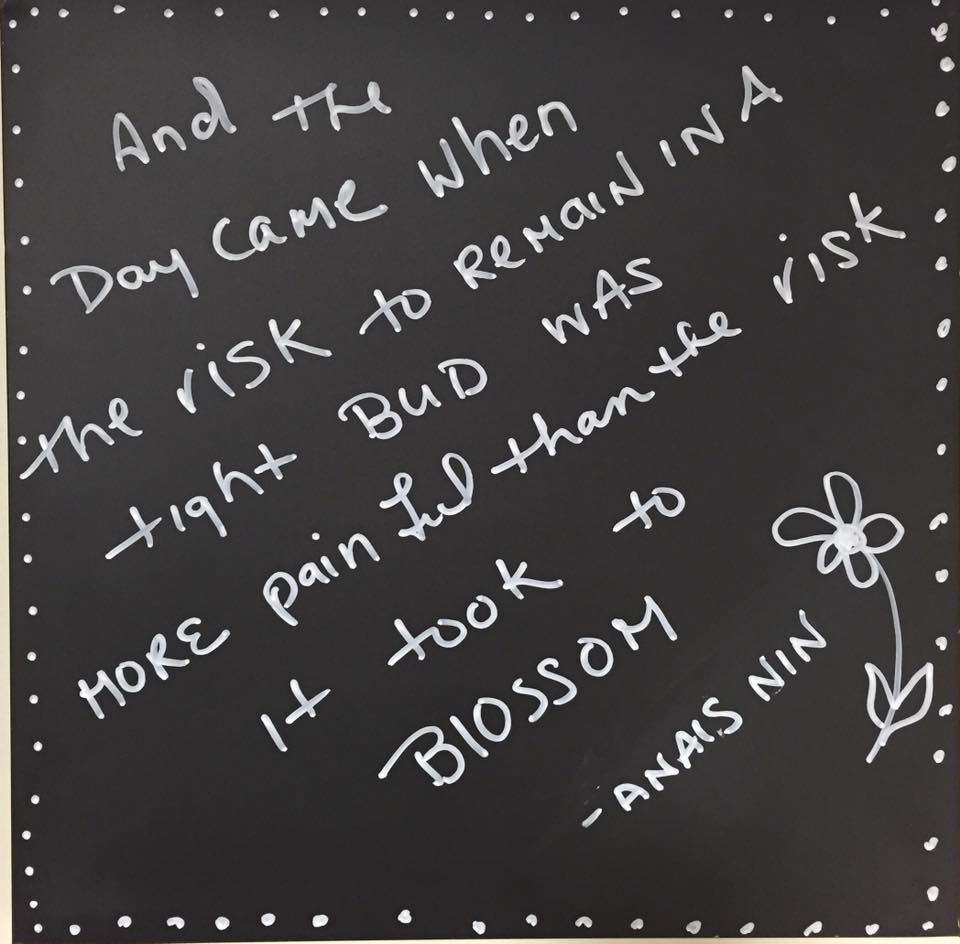 And the
Day Came When
the risk to remain in a
tight BUD WAS
MORE painful than the risk
It took to
BlOSSOM
-ANAIS NIN